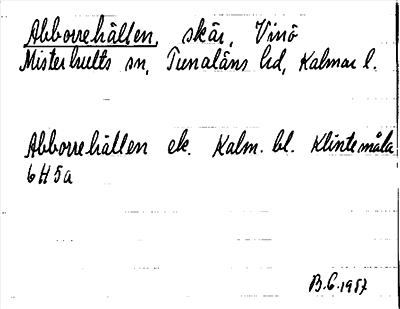 Abborrehällen, skär, Vinö
Misterhults sn, Tunaläns hd, Kalmar l.
Abborrehällen ek. Kalm. bl. Klintemåla
6H5a
B.G. 1957